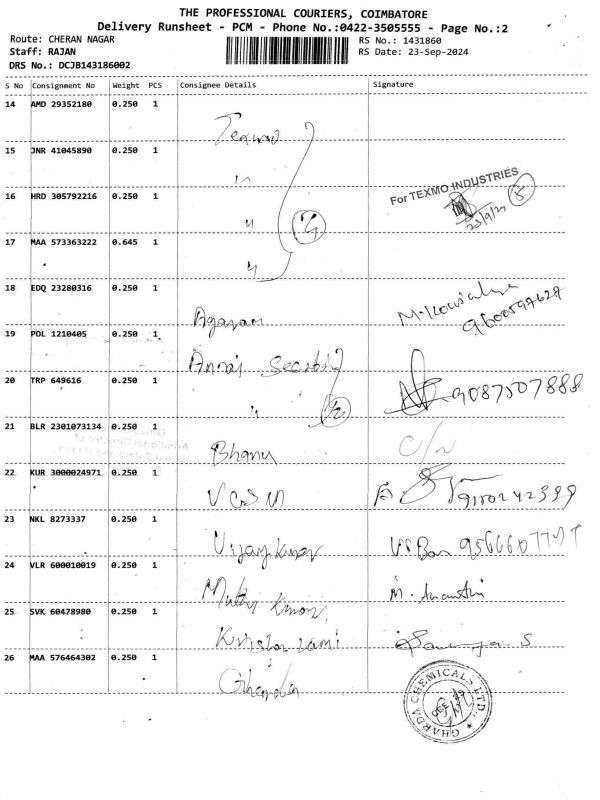 THE PROFESSIONAL COURIERS, COIMBATORE
Delivery Runsheet - PCM - Phone No.:0422-3505555 - Page No.:2
Route: CHERAN NAGAR
Staff: RAJAN
DRS No.: DCJB143186002
RS No.: 1431860
RS Date: 23-Sep-2024
S No Consignment No Weight PCS Consignee Details Signature
14 AMD 29352180 0.250 1
Texmo
15 JNR 41045890 0.250 1
"
For TEXMO INDUSTRIES
16 HRD 305792216 0.250 1
"
23/9/24
17 MAA 573363222 0.645 1
"
18 EDQ 23280316 0.250 1
Agaram
19 POL 1210405 0.250 1
Annai
20 TRP 649616 0.250 1
"
9087507888
21 BLR 2301073134 0.250 1
Bhanu
C/N
22 KUR 3000024971 0.250 1
23 NKL 8273337 0.250 1
Vijay Kumar
24 VLR 600010019 0.250 1
25 SVK 60478980 0.250 1
26 MAA 576464302 0.250 1
Gharda
GHARDA CHEMICALS LTD.